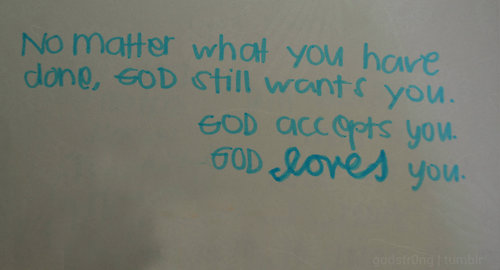 No matter what you have
done, GOD still wants you.
GOD accepts you.
GOD loves you.
godstr0ng | tumblr